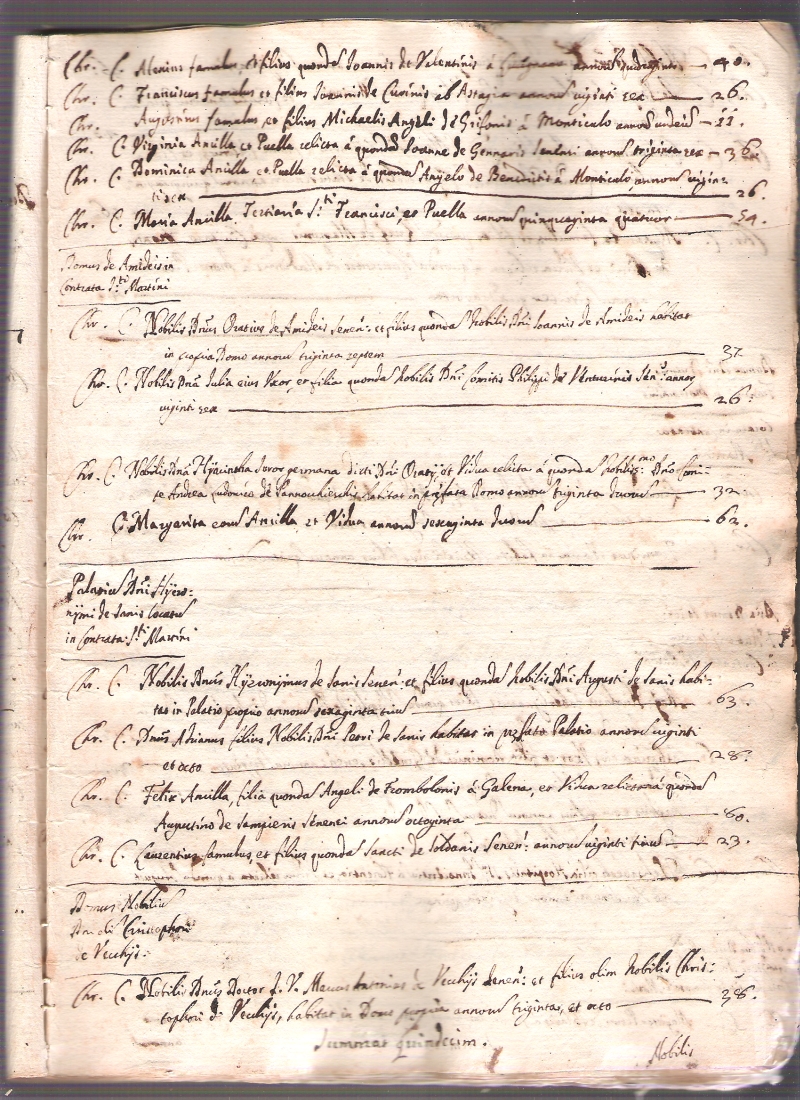 Chr. C. Alexius famulus et filius quondã Joannis de Valentinis à annorũ quadraginta — 40.
Chr. C. Franciscus famulus et filius Joannis de Curinis ab Asciano annorũ viginti sex — 26.
Chr. Augustinus famulus et filius Michaelis Angeli de Grifonis à Monticulo annorũ undecim — 11.
Chr. C. Virginia Ancilla et Puella relicta à quondã Joanne de Gennaris annorũ triginta sex — 36.
Chr. C. Dominica Ancilla et Puella relicta à quondã Angelo de Benedictis à Monticulo annorũ vigin:
ti sex — 26.
Chr. C. Maria Ancilla Tertiaria S.ti Francisci, et Puella annorũ quinquaginta quatuor — 54.
Domus de Amideis in
Contrata S.ti Martini
Chr. C. Nobilis Dnũs Oratius de Amideis Senen: et filius quondã Nobilis Dnĩ Joannis de Amideis habitat
in propria Domo annorũ triginta septem — 37.
Chr. C. Nobilis Dnã Julia eius Uxor, et filia quondã Nobilis Dnĩ Comitis Philippi de Venturinis annor
viginti sex — 26.
Chr. C. Nobilis Dnã Hyacintha Soror germana dicti Dnĩ Oratij et Vidua relicta à quondã Nobilis.mo Dno Comi:
te Andrea Ludovico de Pannochieschis habitat in pr̃fata Domo annorũ triginta duorũ — 32.
Chr. C. Margarita eorũ Ancilla et Vidua annorũ sexaginta duorũ — 62.
Palatiũ Dnĩ Hyero:
nymi de Sanis locatũ
in Contrata S.ti Martini
Chr. C. Nobilis Dnũs Hyeronymus de Sanis Senen: et filius quondã Nobilis Dnĩ Augusti de Sanis habi:
tat in Palatio proprio annorũ sexaginta triũ — 63.
Chr. C. Dnũs Adrianus filius Nobilis Dnĩ Petri de Sanis habitat in prefato Palatio annorũ viginti
et octo — 28.
Chr. C. Felix Ancilla, filia quondã Angeli de Frombolonis à Galena, et Vidua relicta à quondã
Augustino de Sampieris Senensi annorũ octoginta — 80.
Chr. C. Laurentius famulus et filius quondã Sancti de Soldanis Senen: annorũ viginti triũ — 23.
Domus Nobiliũ
Christophori
de Vecchijs.
Chr. C. Nobilis Dnũs Doctor J. V. Marcus Antonius à Vecchijs Senen: et filius olim Nobilis Chris:
tophori de Vecchijs, habitat in Domo propria annorũ triginta, et octo — 38.
Summat quindecim.
Nobilis